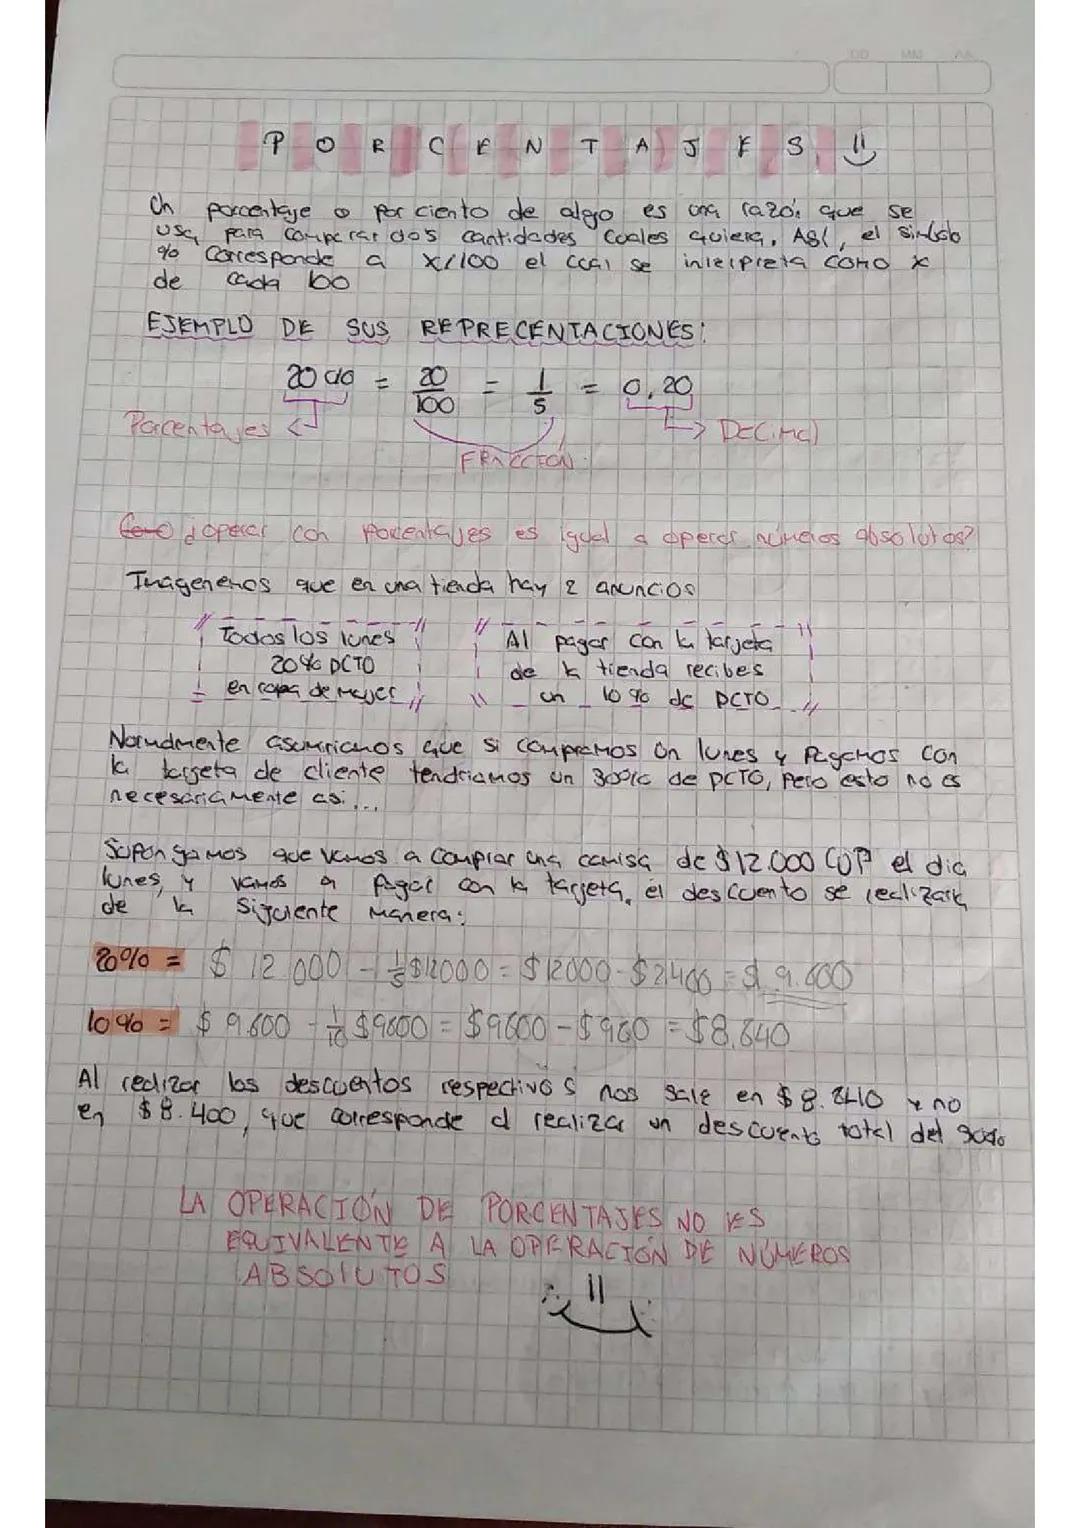 DD MM AA
PORCENTAJES
Un porcentaje o por ciento de algo es una razón que se
usa para comparar dos cantidades cuales quiera. Así, el simbolo
% corresponde a x/100 el cual se interpreta como x
de cada 100
EJEMPLO DE SUS REPRECENTACIONES:
20% = 20/100 = 1/5 = 0,20
Porcentajes
DECIMAL
FRACCIÓN
Como ¿operar con porcentajes es igual a operar números absolutos?
Imagenemos que en una tienda hay 2 anuncios
Todos los lunes
20% DCTO
en ropa de mujer
Al pagar con la tarjeta
de la tienda recibes
un 10% de DCTO
Normalmente asumiriamos que si compramos un lunes y pagamos con
la tarjeta de cliente tendriamos un 30% de DCTO, pero esto no es
necesariamente asi...
Supongamos que vamos a comprar una camisa de $12.000 COP el dia
lunes, y vamos a pagar con la tarjeta, el descuento se realizara
de la siguiente manera:
20% = $12 000 - 1/5 $12000 = $12000 - $2400 = $9.600
10% = $9.600 - 1/10 $9600 = $9600 - $960 = $8.640
Al realizar los descuentos respectivos nos sale en $8.640 y no
en $8.400, que corresponde a realizar un descuento total del 30%
LA OPERACIÓN DE PORCENTAJES NO ES
EQUIVALENTE A LA OPERACIÓN DE NÚMEROS
ABSOLUTOS